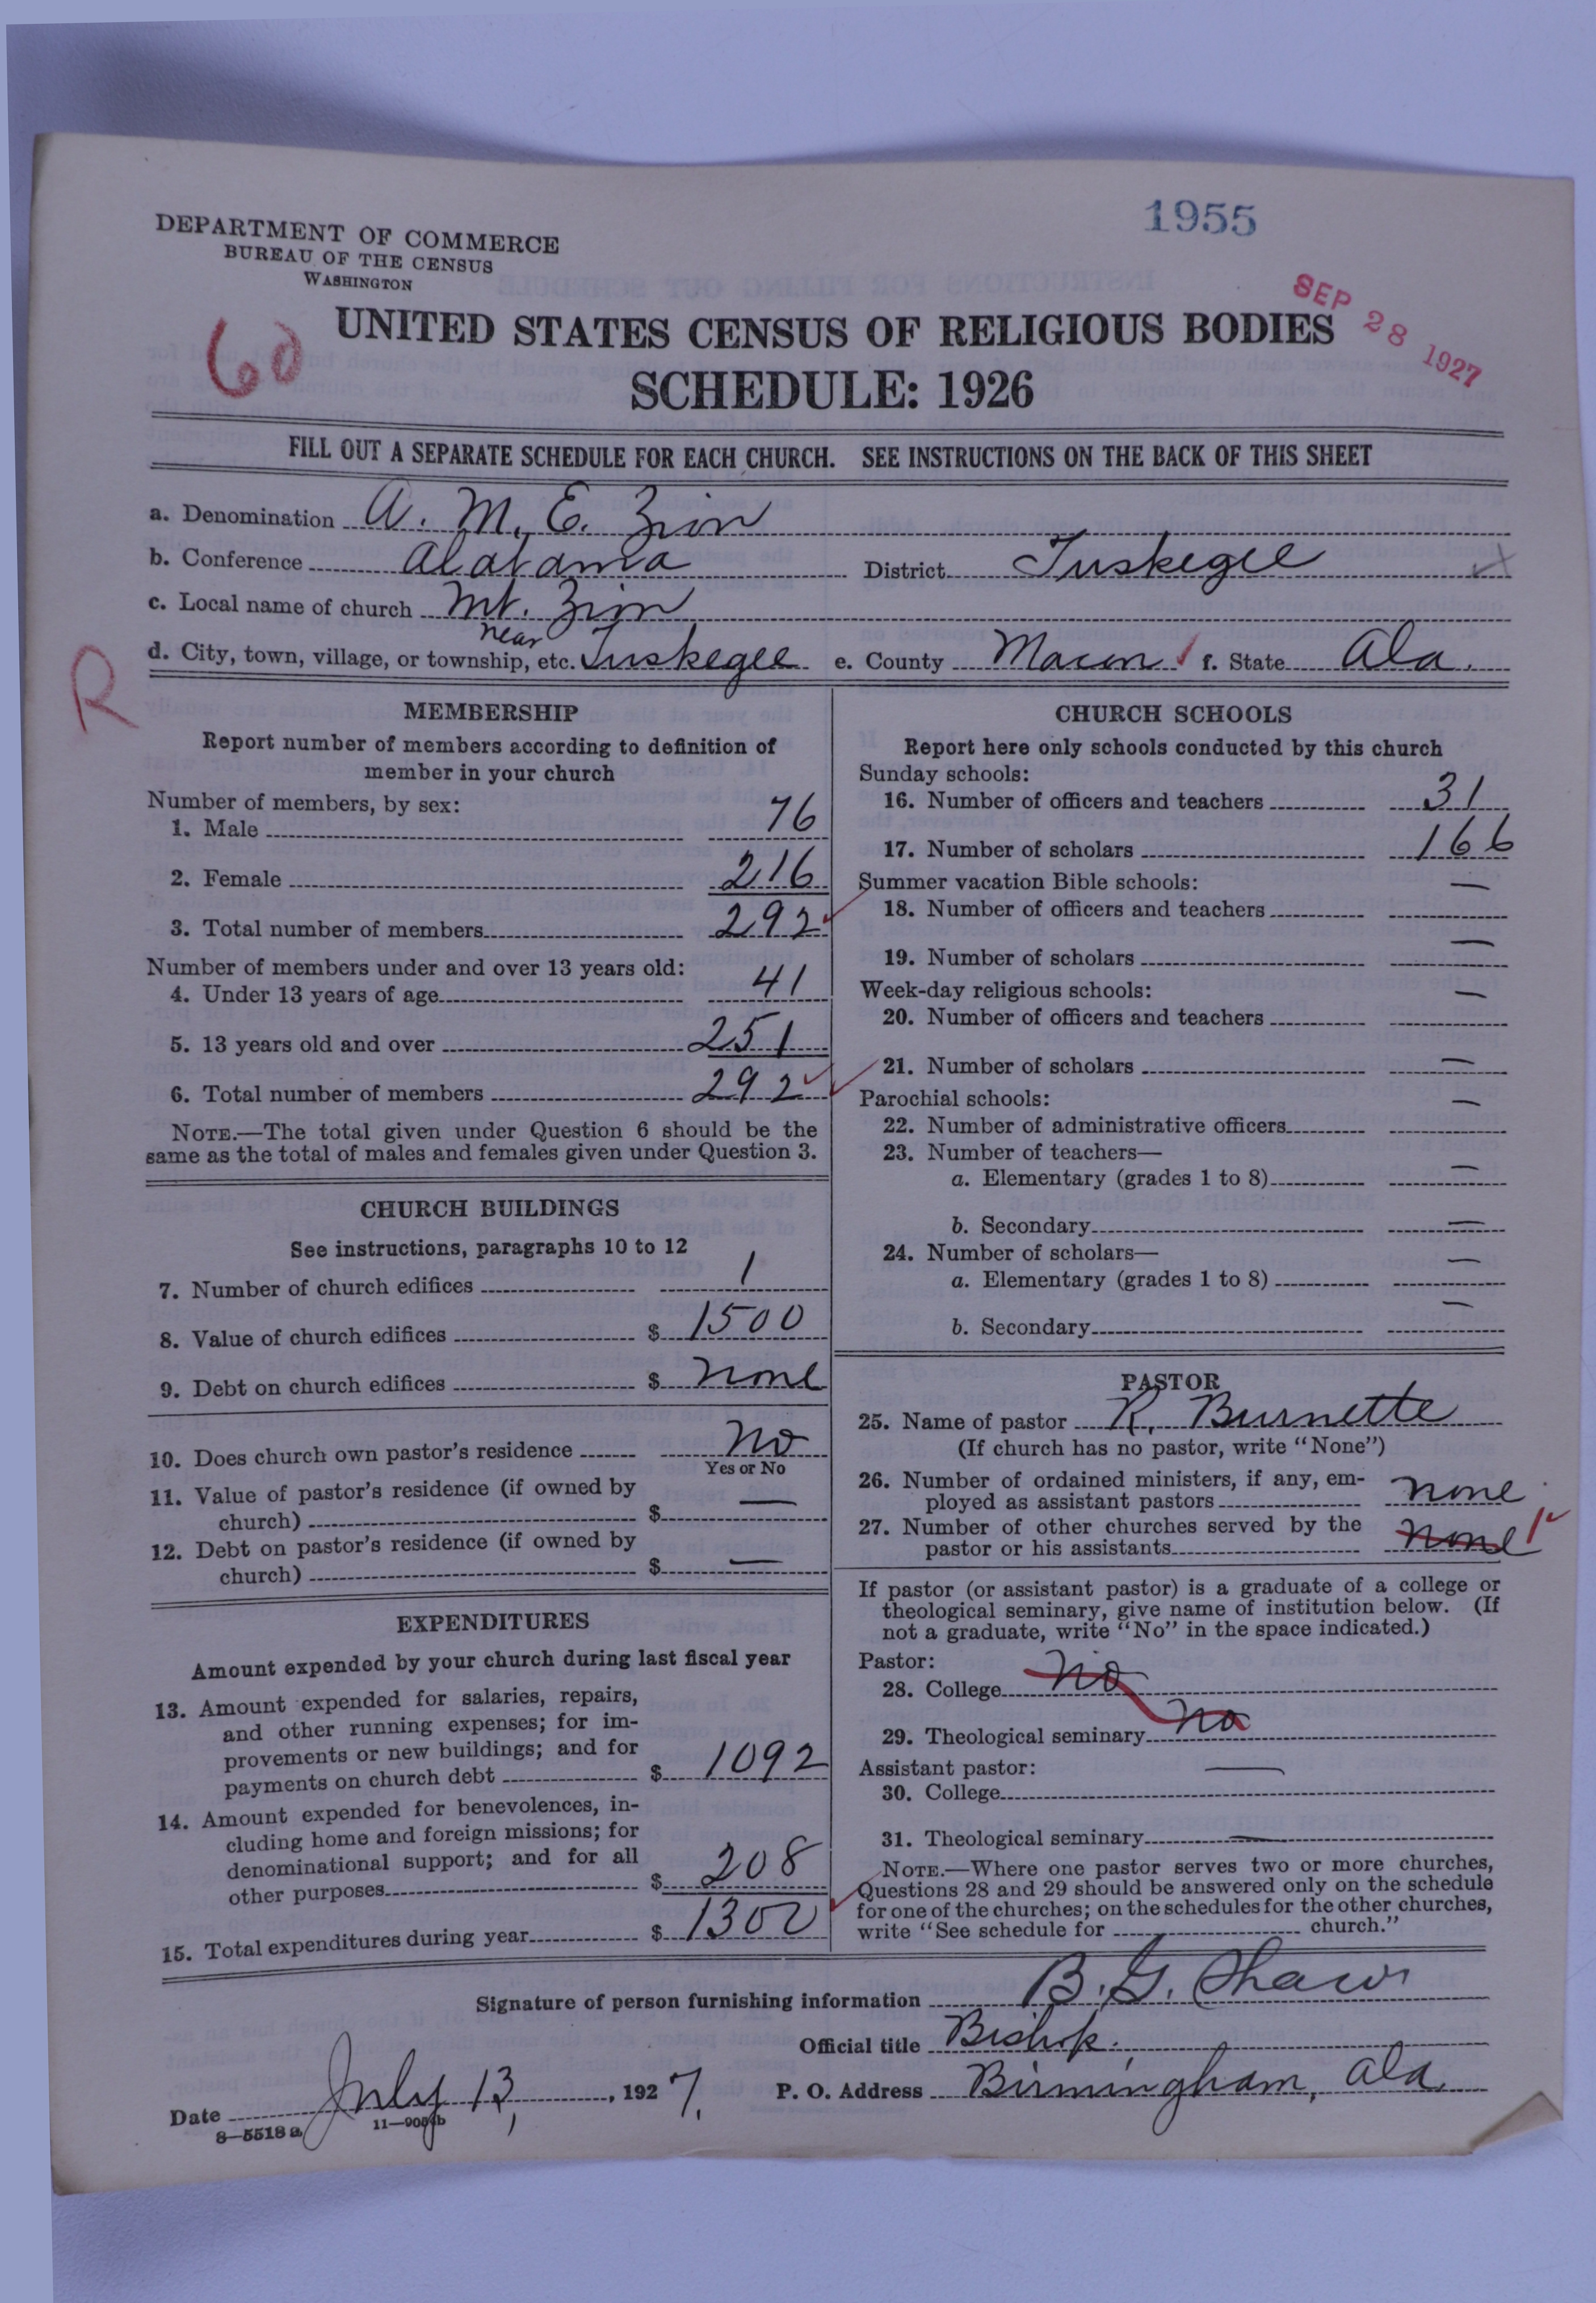 1955
DEPARTMENT OF COMMERCE
BUREAU OF THE CENSUS
WASHINGTON
SEP 28 1927
60
UNITED STATES CENSUS OF RELIGIOUS BODIES
SCHEDULE: 1926
FILL OUT A SEPARATE SCHEDULE FOR EACH CHURCH. SEE INSTRUCTIONS ON THE BACK OF THIS SHEET
a. Denomination A. M. E. Zion
b. Conference Alabama District Tuskegee
c. Local name of church Mt. Zion
d. City, town, village, or township, etc. near Tuskegee e. County Macon f. State Ala.
R
MEMBERSHIP
Report number of members according to definition of
member in your church
Number of members, by sex:
1. Male 76
2. Female 216
3. Total number of members 292
Number of members under and over 13 years old:
4. Under 13 years of age 41
5. 13 years old and over 251
6. Total number of members 292
NOTE.—The total given under Question 6 should be the
same as the total of males and females given under Question 3.
CHURCH BUILDINGS
See instructions, paragraphs 10 to 12
7. Number of church edifices 1
8. Value of church edifices $ 1500
9. Debt on church edifices $ none
10. Does church own pastor's residence No
Yes or No
11. Value of pastor's residence (if owned by
church) $ —
12. Debt on pastor's residence (if owned by
church) $ —
EXPENDITURES
Amount expended by your church during last fiscal year
13. Amount expended for salaries, repairs,
and other running expenses; for im-
provements or new buildings; and for
payments on church debt $ 1092
14. Amount expended for benevolences, in-
cluding home and foreign missions; for
denominational support; and for all
other purposes $ 208
15. Total expenditures during year $ 1300
CHURCH SCHOOLS
Report here only schools conducted by this church
Sunday schools:
16. Number of officers and teachers 31
17. Number of scholars 166
Summer vacation Bible schools:
18. Number of officers and teachers —
19. Number of scholars —
Week-day religious schools:
20. Number of officers and teachers —
21. Number of scholars —
Parochial schools:
22. Number of administrative officers —
23. Number of teachers—
a. Elementary (grades 1 to 8) —
b. Secondary —
24. Number of scholars—
a. Elementary (grades 1 to 8) —
b. Secondary —
PASTOR
25. Name of pastor R. Burnette
(If church has no pastor, write "None")
26. Number of ordained ministers, if any, em-
ployed as assistant pastors none
27. Number of other churches served by the
pastor or his assistants none 1
If pastor (or assistant pastor) is a graduate of a college or
theological seminary, give name of institution below. (If
not a graduate, write "No" in the space indicated.)
Pastor:
28. College No
29. Theological seminary No
Assistant pastor:
30. College —
31. Theological seminary —
NOTE.—Where one pastor serves two or more churches,
Questions 28 and 29 should be answered only on the schedule
for one of the churches; on the schedules for the other churches,
write "See schedule for church."
Signature of person furnishing information B. G. Shaw
Official title Bishop.
Date July 13, 1927. P. O. Address Birmingham, Ala.
8—5518 a 11—9051b